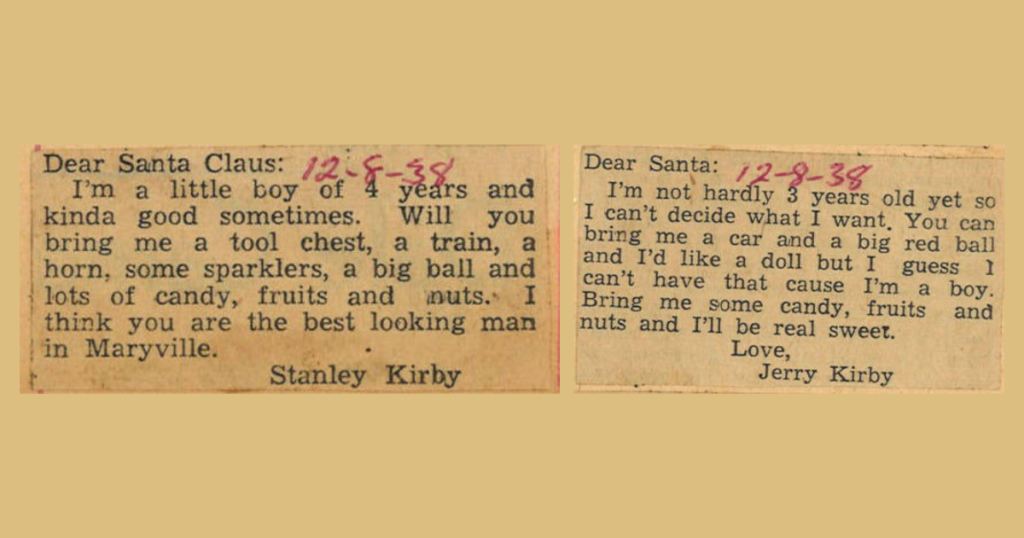 Dear Santa Claus: 12-8-38
I'm a little boy of 4 years and
kinda good sometimes. Will you
bring me a tool chest, a train, a
horn, some sparklers, a big ball and
lots of candy, fruits and nuts. I
think you are the best looking man
in Maryville.
Stanley Kirby
Dear Santa: 12-8-38
I'm not hardly 3 years old yet so
I can't decide what I want. You can
bring me a car and a big red ball
and I'd like a doll but I guess I
can't have that cause I'm a boy.
Bring me some candy, fruits and
nuts and I'll be real sweet.
Love,
Jerry Kirby